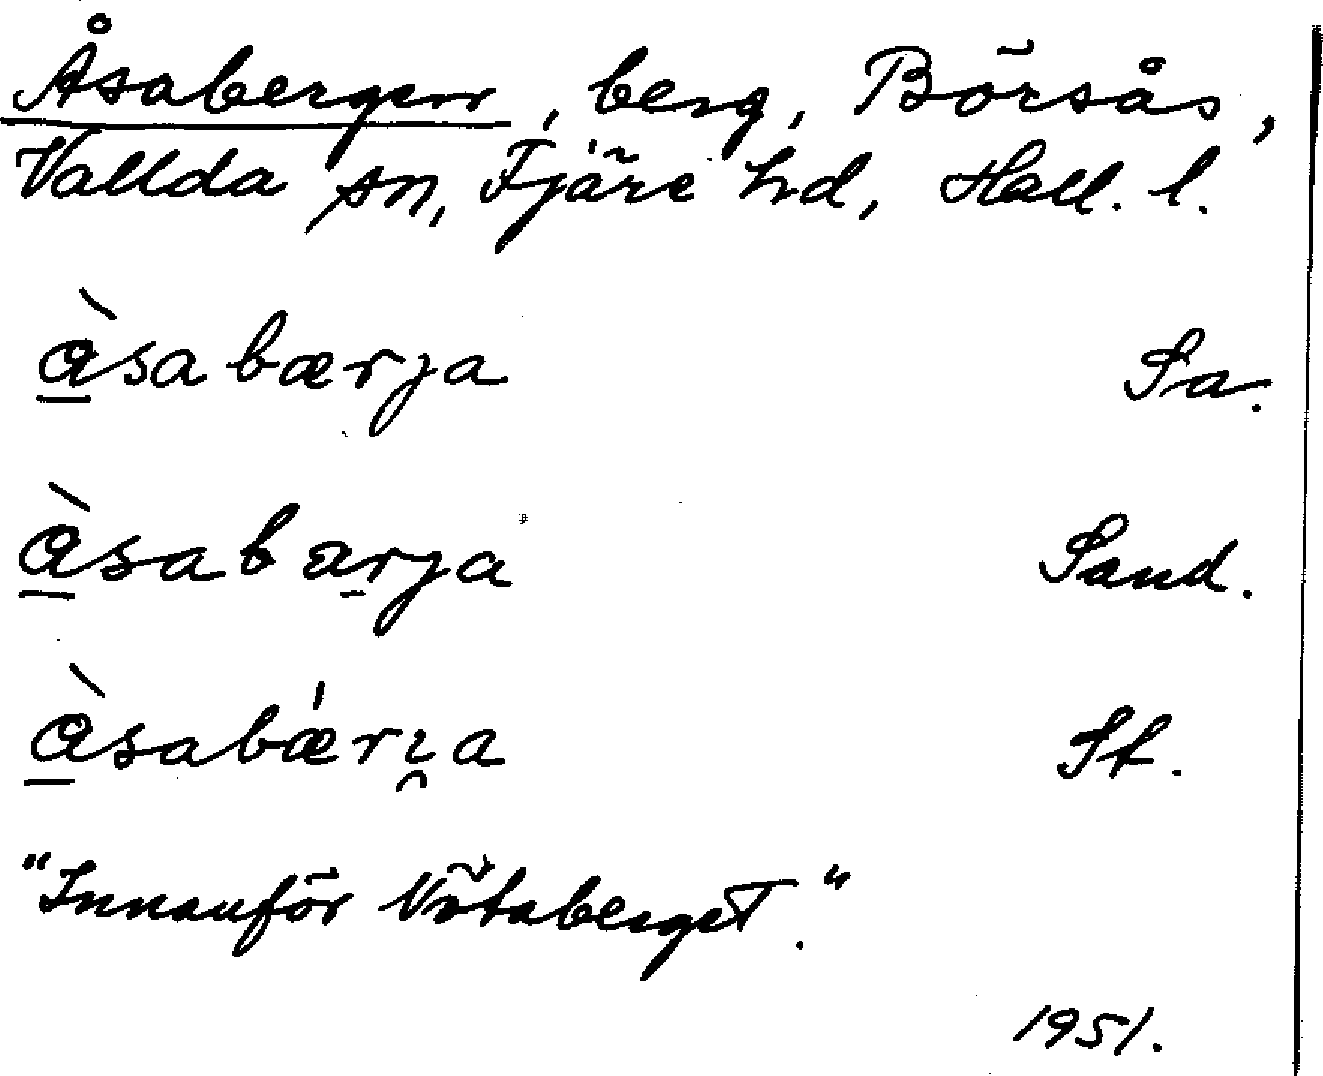 Åsabergen, berg, Börsås,
Vallda sn, Fjäre hd, Hall. l.
à̲sabærja Sa.
à̲sabarja Sand.
à̲sabǽri̯a St.
"Innanför Nötaberget."
1951.